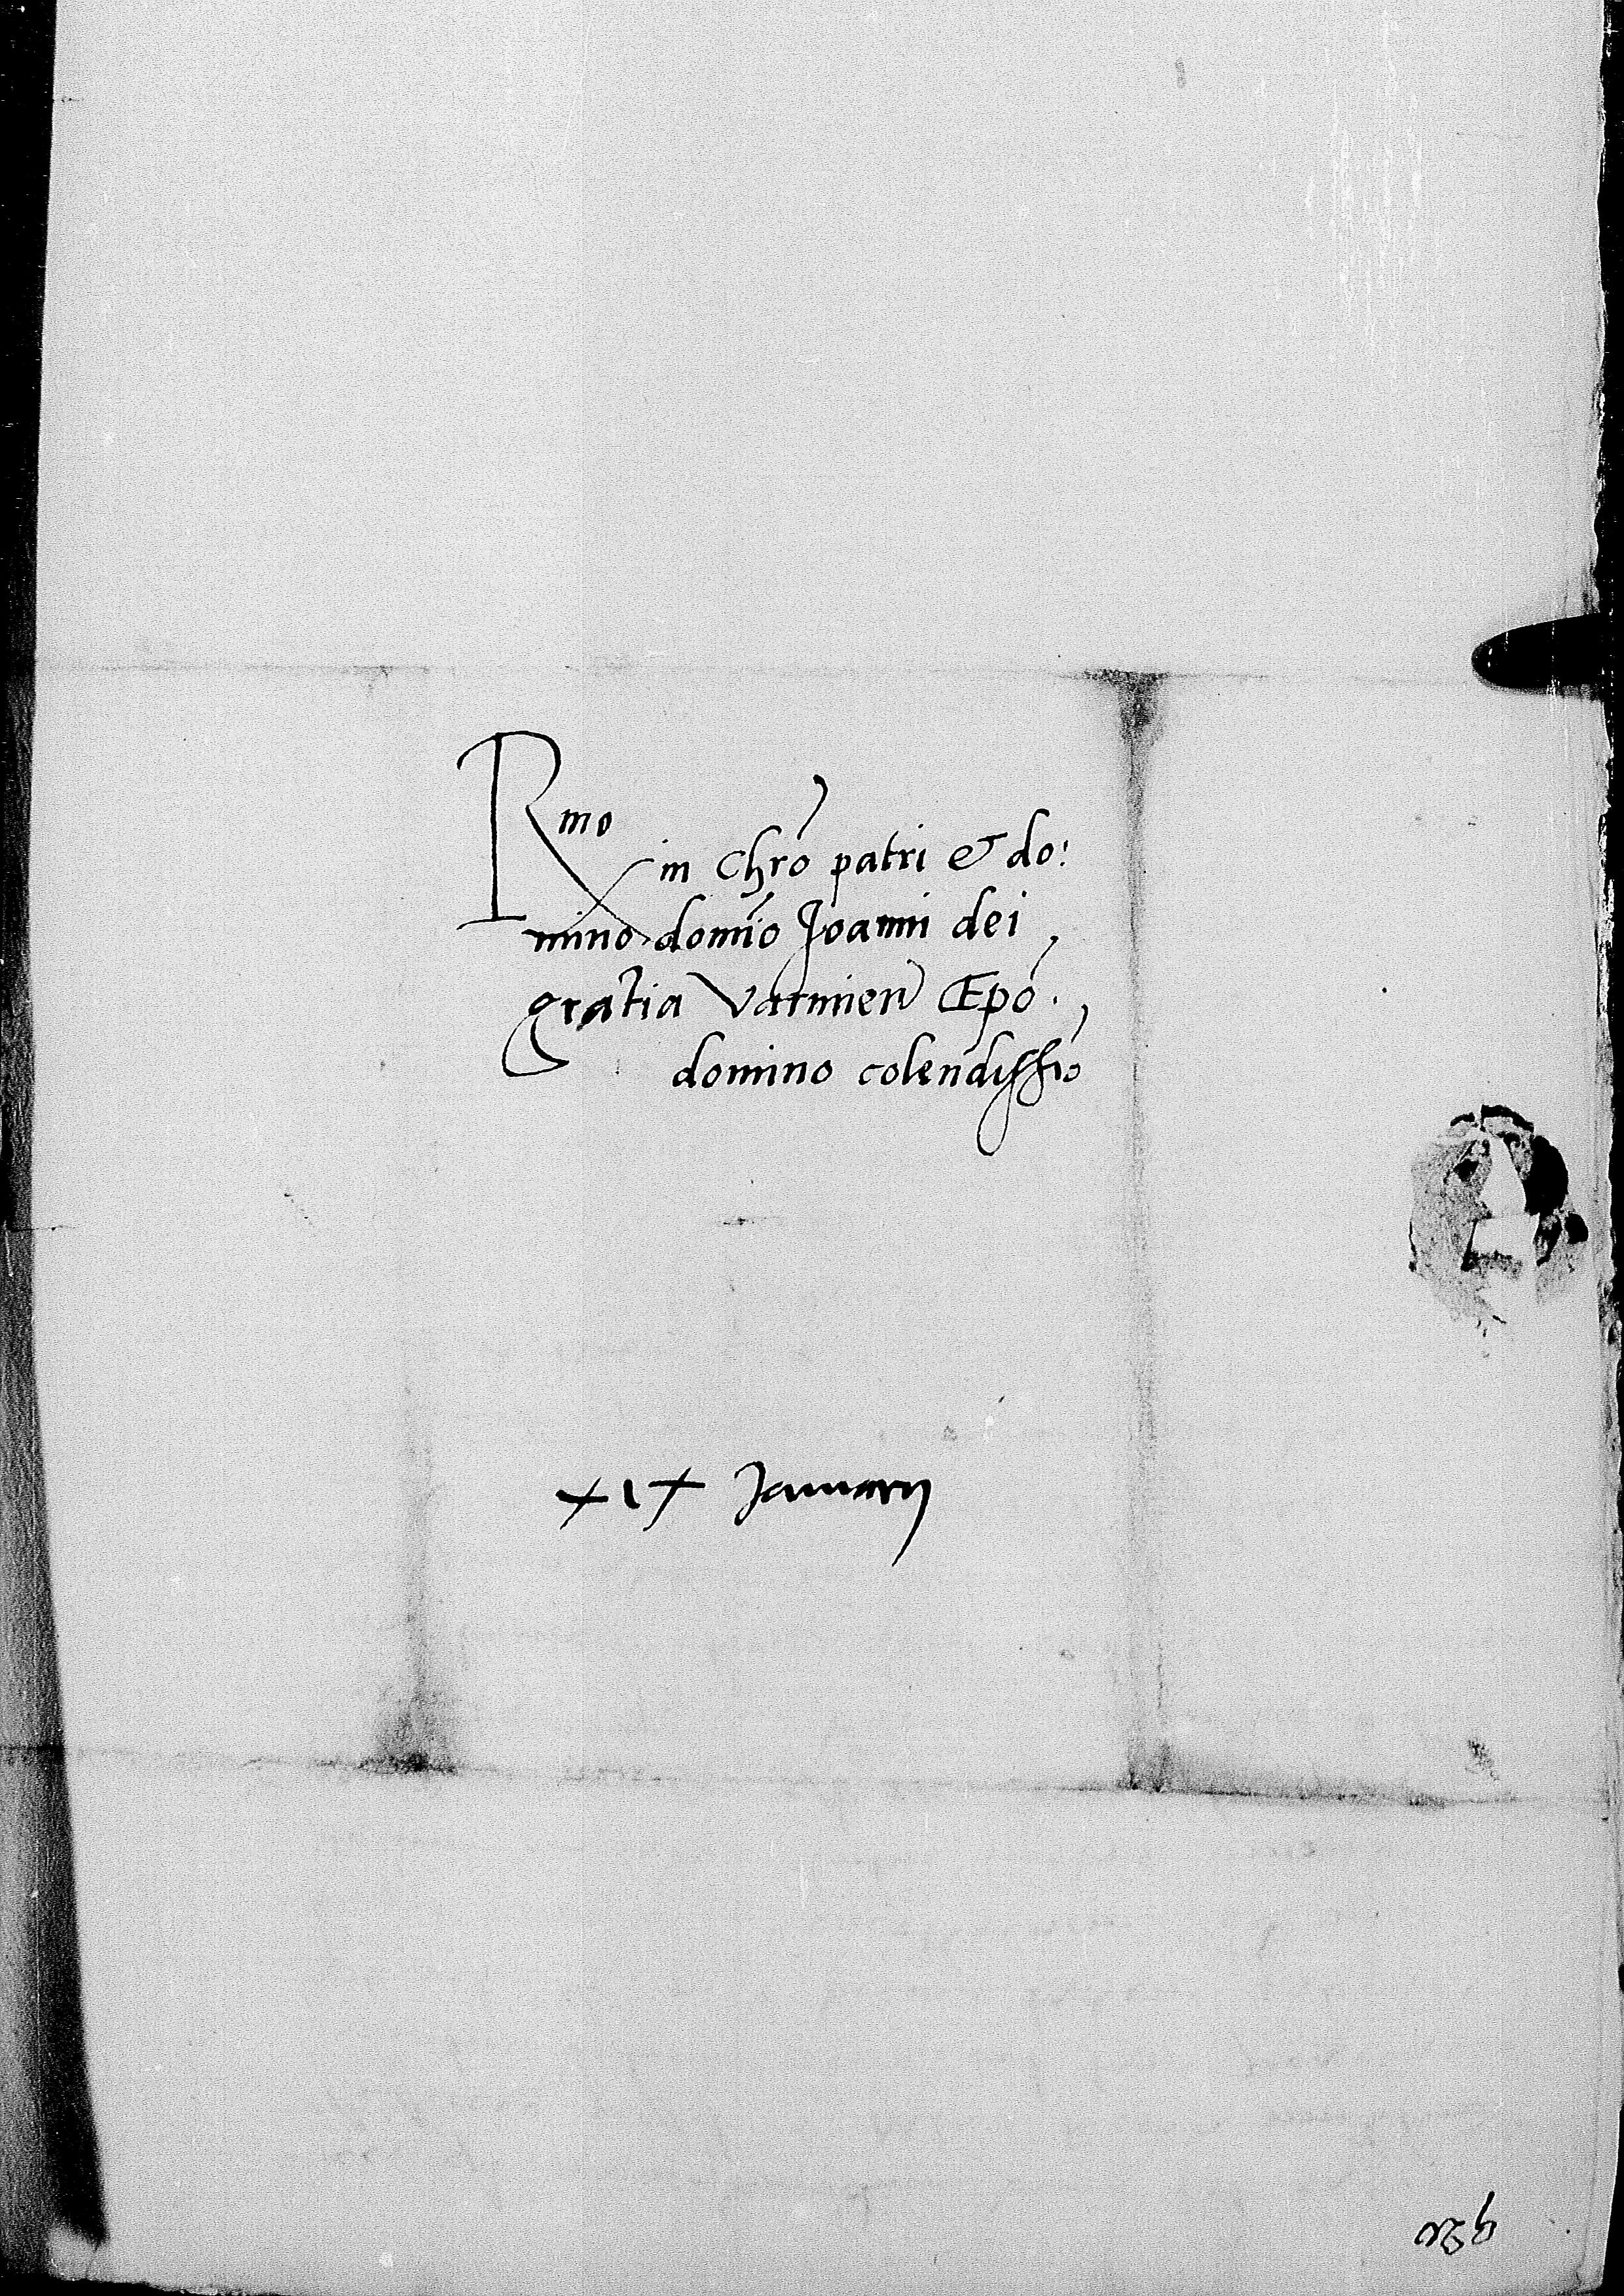 Rmo in Chro patri & do:
mino domio Joanni dei
gratia Varmien Epo.
domino colendissio
xix Januarij